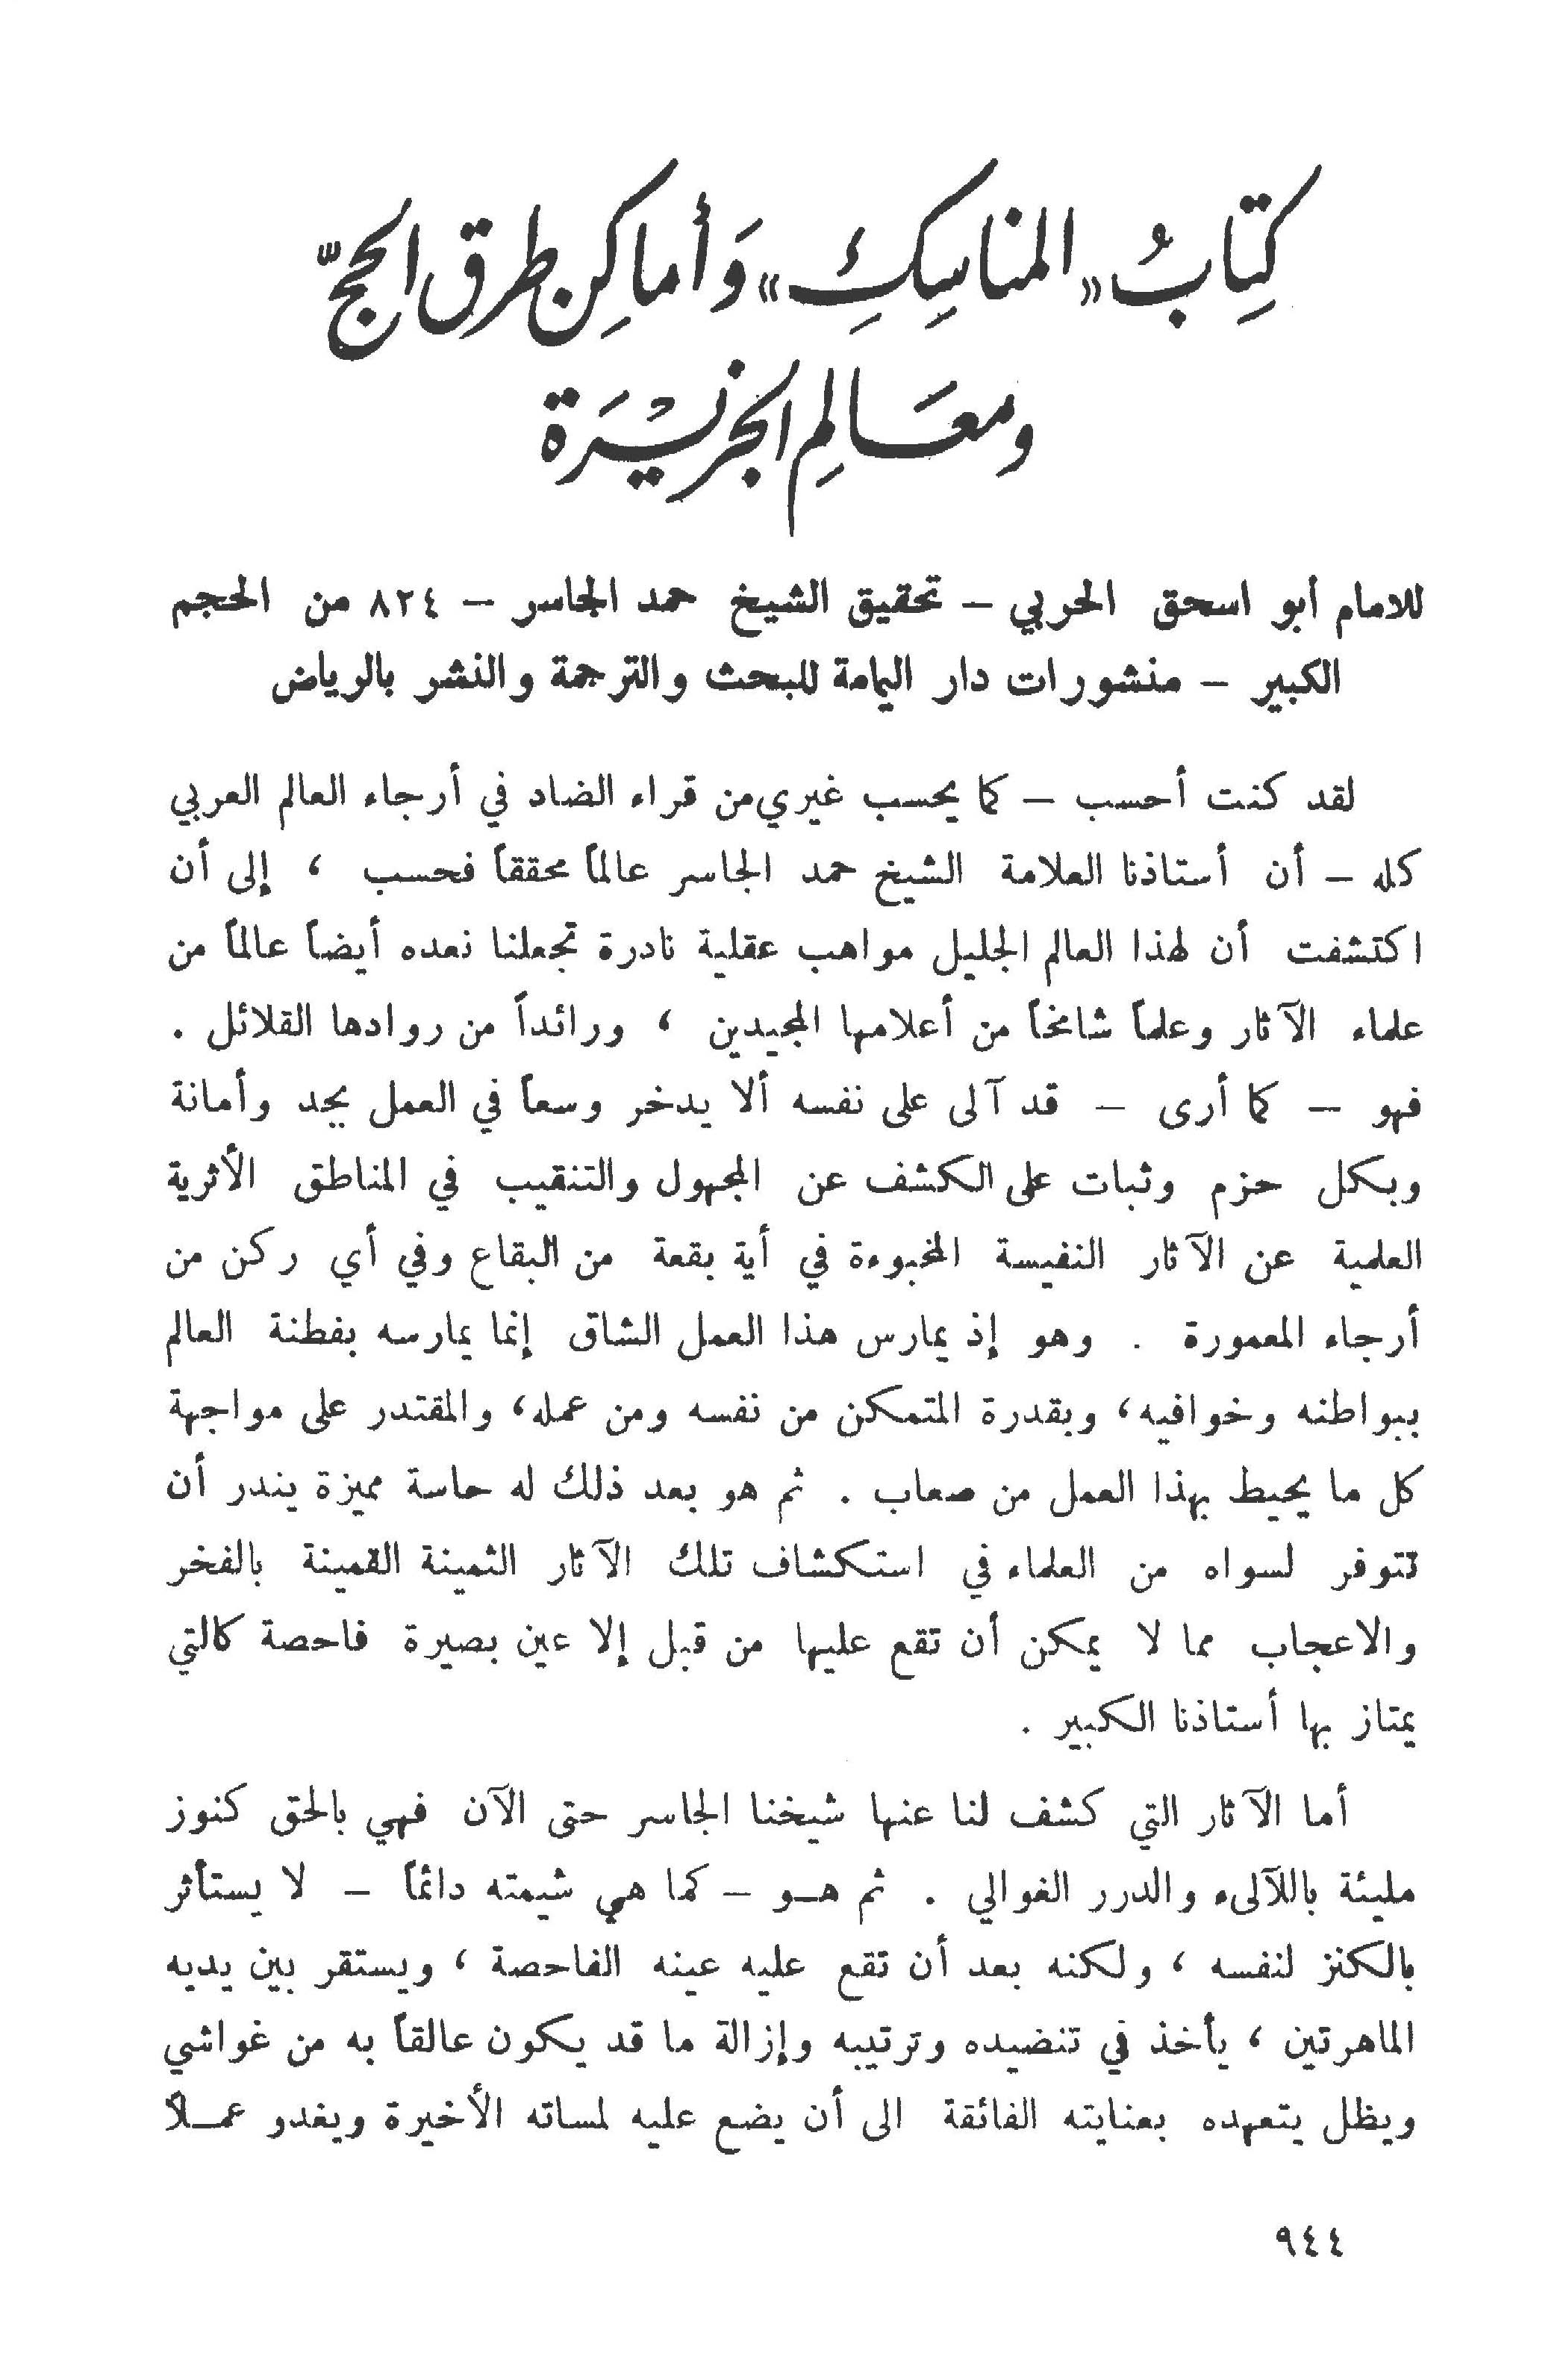 كِتابُ «المناسِكِ» وَأماكِن طرق الحجّ
ومعَالِم الجزيْرَة
للامام أبو اسحق الحربي – تحقيق الشيخ حمد الجاسر – ٨٢٤ من الحجم
الكبير – منشورات دار اليمامة للبحث والترجمة والنشر بالرياض
لقد كنت أحسب – كما يحسب غيري من قراء الضاد في أرجاء العالم العربي
كله – أن أستاذنا العلامة الشيخ حمد الجاسر عالماً محققاً فحسب ، إلى أن
اكتشفت أن لهذا العالم الجليل مواهب عقلية نادرة تجعلنا نعده أيضاً عالماً من
علماء الآثار وعلماً شامخاً من أعلامها المجيدين ، ورائداً من روادها القلائل .
فهو – كما أرى – قد آلى على نفسه ألا يدخر وسعاً في العمل بجد وأمانة
وبكل حزم وثبات على الكشف عن المجهول والتنقيب في المناطق الأثرية
العلمية عن الآثار النفيسة المخبوءة في أية بقعة من البقاع وفي أي ركن من
أرجاء المعمورة . وهو إذ يمارس هذا العمل الشاق إنما يمارسه بفطنة العالم
ببواطنه وخوافيه، وبقدرة المتمكن من نفسه ومن عمله، والمقتدر على مواجهة
كل ما يحيط بهذا العمل من صعاب . ثم هو بعد ذلك له حاسة مميزة يندر أن
تتوفر لسواه من العلماء في استكشاف تلك الآثار الثمينة القمينة بالفخر
والاعجاب مما لا يمكن أن تقع عليها من قبل إلا عين بصيرة فاحصة كالتي
يمتاز بها أستاذنا الكبير .
أما الآثار التي كشف لنا عنها شيخنا الجاسر حتى الآن فهي بالحق كنوز
مليئة باللآلىء والدرر الغوالي . ثم هـو – كما هي شيمته دائماً – لا يستأثر
بالكنز لنفسه ، ولكنه بعد أن تقع عليه عينه الفاحصة ، ويستقر بين يديه
الماهرتين ، يأخذ في تنضيده وترتيبه وإزالة ما قد يكون عالقاً به من غواشي
ويظل يتعهده بعنايته الفائقة الى أن يضع عليه لمساته الأخيرة ويغدو عمـلاً
٩٤٤